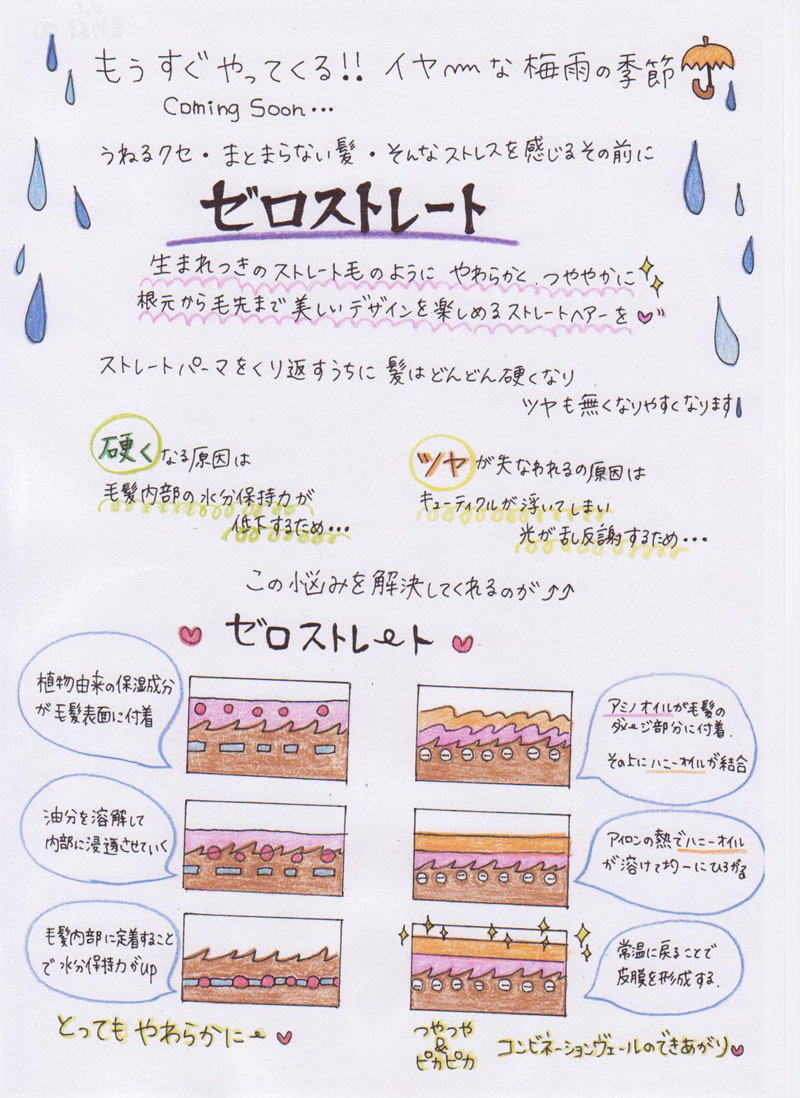 もうすぐやってくる!! イヤ〜な梅雨の季節
Coming Soon...
うねるクセ・まとまらない髪・そんなストレスを感じるその前に
ゼロストレート
生まれつきのストレート毛のように やわらかと、つややかに
根元から毛先まで美しいデザインを楽しめるストレートヘアーを
ストレートパーマをくり返すうちに 髪はどんどん硬くなり
ツヤも無くなりやすくなります
硬くなる原因は
毛髪内部の水分保持力が
低下するため...
ツヤが失なわれるの原因は
キューティクルが浮いてしまい
光が乱反謝するため...
この悩みを解決してくれるのが↑↑
ゼロストレート
植物由来の保湿成分
が毛髪表面に付着
油分を溶解して
内部に浸透させていく
毛髪内部に定着すること
で水分保持力がup
とっても やわらかに〜
アミノオイルが毛髪の
ダメージ部分に付着.
その上にハニーオイルが結合
アイロンの熱でハニーオイル
が溶けて均一にひろがる
常温に戻ることで
皮膜を形成する.
つやつや
&
ピカピカ
コンビネーションヴェールのできあがり